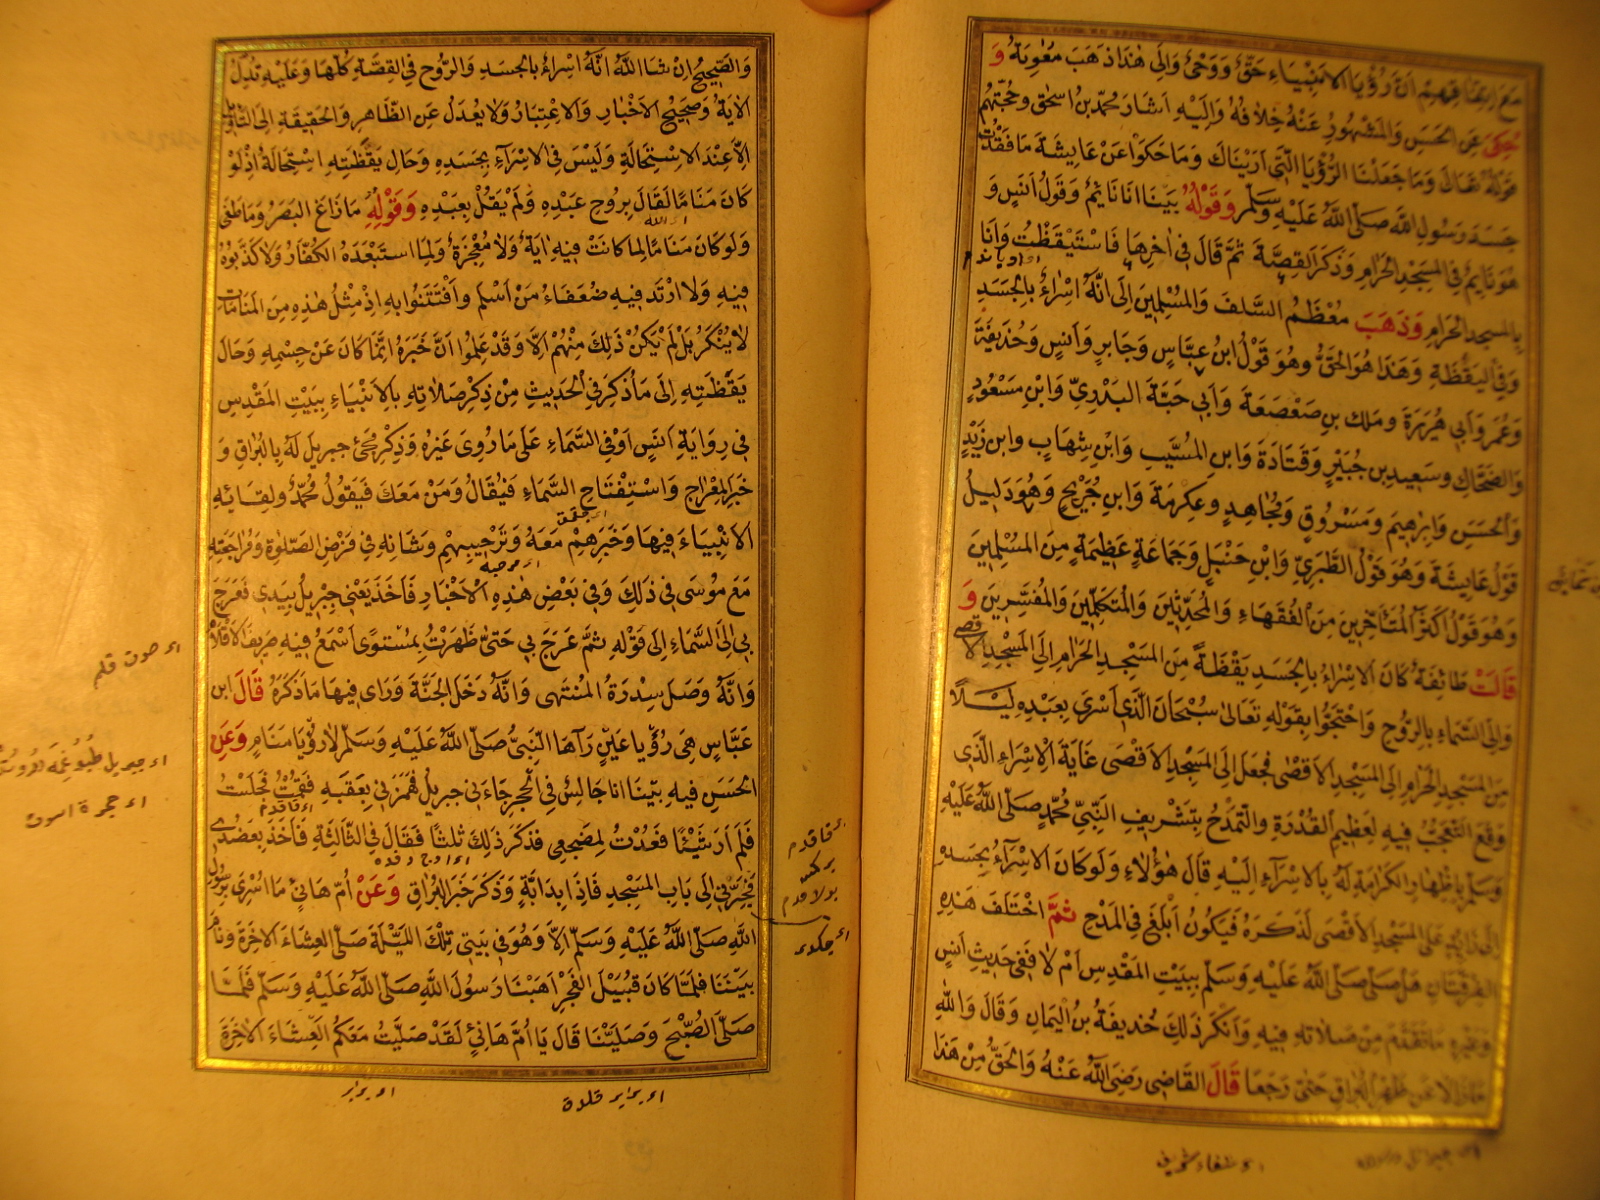 مَعَ اِتِّفَاقِهِمْ اَنَّ رُؤْيَا الْاَنْبِيَاءِ حَقٌّ وَوَحْىٌ وَاِلَى هٰذَا ذَهَبَ مُعٰوِيَةُ وَ
حُكِىَ عَنِ الْحَسَنِ وَالْمَشْهُورُ عَنْهُ خِلَافُهُ وَاِلَيْهِ اَشَارَ مُحَمَّدُ بْنُ اسْحٰقَ وَحُجَّتُهُمْ
قَوْلُهُ تَعَالَى وَمَا جَعَلْنَا الرُّؤْيَا الَّتِى اَرَيْنَاكَ وَمَا حَكَوْا عَنْ عَايِشَةَ مَا فَقَدْتُ
جَسَدَ رَسُولِ اللّٰهِ صَلَّى اللّٰهُ عَلَيْهِ وَسَلَّمَ وَقَوْلُهُ بَيْنَا اَنَا نَايِمٌ وَقَوْلُ اَنَسٍ وَ
هُوَ نَايِمٌ فِى الْمَسْجِدِ الْحَرَامِ وَذَكَرَ الْقِصَّةَ ثُمَّ قَالَ فِى اٰخِرِهَا فَاسْتَيْقَظْتُ وَاَنَا
بِالْمَسْجِدِ الْحَرَامِ وَذَهَبَ مُعْظَمُ السَّلَفِ وَالْمُسْلِمِينَ اِلَى اَنَّهُ اِسْرَاءٌ بِالْجَسَدِ
وَفِى الْيَقْظَةِ وَهَذَا هُوَ الْحَقُّ وَهُوَ قَوْلُ ابْنِ عَبَّاسٍ وَجَابِرٍ وَاَنَسٍ وَحُذَيْفَةَ
وَعُمَرَ وَاَبِى هُرَيْرَةَ وَمٰلِكِ بْنِ صَعْصَعَةَ وَاَبِى حَبَّةَ الْبَدْرِىِّ وَابْنِ مَسْعُودٍ
وَالضَّحَّاكِ وَسَعِيدِ بْنِ جُبَيْرٍ وَقَتَادَةَ وَابْنِ الْمُسَيِّبِ وَابْنِ شِهَابٍ وَابْنِ زَيْدٍ
وَالْحَسَنِ وَاِبْرٰهِيمَ وَمَسْرُوقٍ وَمُجَاهِدٍ وَعِكْرِمَةَ وَابْنِ جُرَيْجٍ وَهُوَ دَلِيلُ
قَوْلِ عَايِشَةَ وَهُوَ قَوْلُ الطَّبَرِىِّ وَابْنِ حَنْبَلٍ وَجَمَاعَةٍ عَظِيمَةٍ مِنَ الْمُسْلِمِينَ
وَهُوَ قَوْلُ اَكْثَرِ الْمُتَأَخِّرِينَ مِنَ الْفُقَهَاءِ وَالْمُحَدِّثِينَ وَالْمُتَكَلِّمِينَ وَالْمُفَسِّرِينَ وَ
قَالَتْ طَائِفَةٌ كَانَ الْاِسْرَاءُ بِالْجَسَدِ يَقْظَةً مِنَ الْمَسْجِدِ الْحَرَامِ اِلَى الْمَسْجِدِ الْاَقْصَى
وَاِلَى السَّمَاءِ بِالرُّوحِ وَاحْتَجُّوا بِقَوْلِهِ تَعَالَى سُبْحَانَ الَّذِى اَسْرَى بِعَبْدِهِ لَيْلًا
مِنَ الْمَسْجِدِ الْحَرَامِ اِلَى الْمَسْجِدِ الْاَقْصَى فَجَعَلَ اِلَى الْمَسْجِدِ الْاَقْصَى غَايَةَ الْاِسْرَاءِ الَّذِى
وَقَعَ التَّعَجُّبُ فِيهِ لِعَظِيمِ الْقُدْرَةِ وَالتَّمَدُّحُ بِتَشْرِيفِ النَّبِىِّ مُحَمَّدٍ صَلَّى اللّٰهُ عَلَيْهِ
وَسَلَّمَ بِاِظْهَارِ الْكَرَامَةِ لَهُ بِالْاِسْرَاءِ اِلَيْهِ قَالَ هٰؤُلَاءِ وَلَوْ كَانَ الْاِسْرَاءُ بِجَسَدِهِ
اِلَى زَايِدٍ عَلَى الْمَسْجِدِ الْاَقْصَى لَذَكَرَهُ فَيَكُونُ اَبْلَغَ فِى الْمَدْحِ ثُمَّ اخْتَلَفَ هَذِهِ
الْفِرْقَتَانِ هَلْ صَلَّى صَلَّى اللّٰهُ عَلَيْهِ وَسَلَّمَ بِبَيْتِ الْمَقْدِسِ اَمْ لَا فَفِى حَدِيثِ اَنَسٍ
وَغَيْرِهِ مَا تَقَدَّمَ مِنْ صَلَاتِهِ فِيهِ وَاَنْكَرَ ذَلِكَ حُذَيْفَةُ بْنُ الْيَمَانِ وَقَالَ وَاللّٰهِ
مَا زَالَا عَنْ ظَهْرِ الْبُرَاقِ حَتَّى رَجَعَا قَالَ الْقَاضِى رَضِىَ اللّٰهُ عَنْهُ وَالْحَقُّ مِنْ هَذَا
اى شفاء شريف
وَالصَّحِيحُ اِنْ شَا اللّٰهُ اَنَّهُ اِسْرَاءٌ بِالْجَسَدِ وَالرُّوحِ فِى الْقِصَّةِ كُلِّهَا وَعَلَيْهِ تَدُلُّ
الْاٰيَةُ وَصَحِيحُ الْاَخْبَارِ وَالْاِعْتِبَارُ وَلَا يُعْدَلُ عَنِ الظَّاهِرِ وَالْحَقِيقَةِ اِلَى التَّاْوِيلِ
اِلَّا عِنْدَ الْاِسْتِحَالَةِ وَلَيْسَ فِى الْاِسْرَاءِ بِجَسَدِهِ وَحَالِ يَقَظَتِهِ اسْتِحَالَةٌ اِذْ لَوْ
كَانَ مَنَامًا لَقَالَ بِرُوحِ عَبْدِهِ وَلَمْ يَقُلْ بِعَبْدِهِ وَقَوْلِهِ مَا زَاغَ الْبَصَرُ وَمَا طَغَى
اى الله
وَلَوْ كَانَ مَنَامًا لَمَا كَانَتْ فِيهِ اٰيَةٌ وَلَا مُعْجِزَةٌ وَلَمَا اسْتَبْعَدَهُ الْكُفَّارُ وَلَا كَذَّبُوهُ
فِيهِ وَلَا ارْتَدَّ فِيهِ ضُعَفَاءُ مَنْ اَسْلَمَ وَافْتَتَنُوا بِهِ اِذْ مِثْلُ هٰذِهِ مِنَ الْمَنَامَاتِ
لَا يُنْكَرُ بَلْ لَمْ يَكُنْ ذَلِكَ مِنْهُمْ اِلَّا وَقَدْ عَلِمُوا اَنَّ خَبَرَهُ اِنَّمَا كَانَ عَنْ جِسْمِهِ وَحَالَ
يَقَظَتِهِ اِلَى مَا ذُكِرَ فِى الْحَدِيثِ مِنْ ذِكْرِ صَلَاتِهِ بِالْاَنْبِيَاءِ بِبَيْتِ الْمَقْدِسِ
فِى رِوَايَةِ اَنَسٍ اَوْ فِى السَّمَاءِ عَلَى مَا رَوَى غَيْرُهُ وَذِكْرِ مَجِئِ جِبْرِيلَ لَهُ بِالْبُرَاقِ وَ
خَبَرِ الْمِعْرَاجِ وَاسْتِفْتَاحِ السَّمَاءِ فَيُقَالُ وَمَنْ مَعَكَ فَيَقُولُ مُحَمَّدٌ وَلِقَائِهِ
الْاَنْبِيَاءَ فِيهَا وَخَبَرِهِمْ مَعَهُ وَتَرْحِيبِهِمْ وَشَانِهِ فِى فَرْضِ الصَّلٰوةِ وَمُرَاجَعَتِهِ
مَعَ مُوسَى فِى ذَلِكَ وَفِى بَعْضِ هٰذِهِ الْاَخْبَارِ فَاَخَذَ يَعْنِى جِبْرِيلُ بِيَدِى فَعَرَجَ
بِى اِلَى السَّمَاءِ اِلَى قَوْلِهِ ثُمَّ عَرَجَ بِى حَتَّى ظَهَرْتُ بِمُسْتَوًى اَسْمَعُ فِيهِ صَرِيفَ الْاَقْلَامِ
وَاَنَّهُ وَصَلَ سِدْرَةَ الْمُنْتَهَى وَاَنَّهُ دَخَلَ الْجَنَّةَ وَرَاَى فِيهَا مَا ذَكَرَهُ قَالَ ابْنُ
عَبَّاسٍ هِىَ رُؤْيَا عَيْنٍ رَآهَا النَّبِىُّ صَلَّى اللّٰهُ عَلَيْهِ وَسَلَّمَ لَا رُؤْيَا مَنَامٍ وَعَنِ
الْحَسَنِ فِيهِ بَيْنَا اَنَا جَالِسٌ فِى الْحِجْرِ جَاءَنِى جِبْرِيلُ فَهَمَزَنِى بِعَقِبِهِ فَقُمْتُ فَجَلَسْتُ
فَلَمْ اَرَ شَيْئًا فَعُدْتُ لِمَضْجَعِى فَذَكَرَ ذَلِكَ ثَلٰثًا فَقَالَ فِى الثَّالِثَةِ فَاَخَذَ بِعَضُدِى
فَجَرَّنِى اِلَى بَابِ الْمَسْجِدِ فَاِذَا بِدَابَّةٍ وَذَكَرَ خَبَرَ الْبُرَاقِ وَعَنْ اُمِّ هَانِئٍ مَا اُسْرِىَ بِرَسُولِ
اللّٰهِ صَلَّى اللّٰهُ عَلَيْهِ وَسَلَّمَ اِلَّا وَهُوَ فِى بَيْتِى تِلْكَ اللَّيْلَةَ صَلَّى الْعِشَاءَ الْاٰخِرَةَ وَنَامَ
بَيْنَنَا فَلَمَّا كَانَ قُبَيْلَ الْفَجْرِ اَهَبَّنَا رَسُولُ اللّٰهِ صَلَّى اللّٰهُ عَلَيْهِ وَسَلَّمَ فَلَمَّا
صَلَّى الصُّبْحَ وَصَلَّيْنَا قَالَ يَا اُمَّ هَانِئٍ لَقَدْ صَلَّيْتُ مَعَكُمُ الْعِشَاءَ الْاٰخِرَةَ
اى صوت قلم